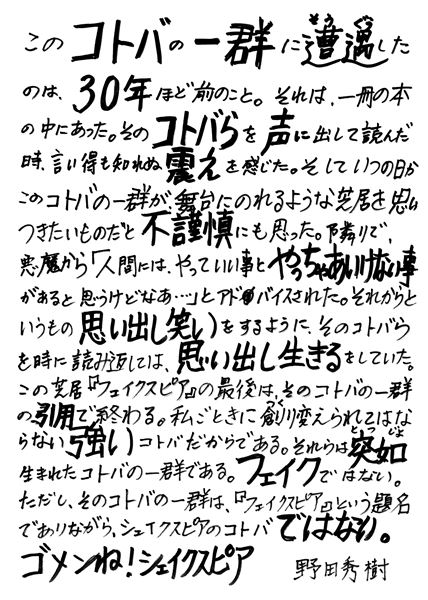 このコトバの一群に遭遇した
のは、30年ほど前のこと。それは、一冊の本
の中にあった。そのコトバらを声に出して読んだ
時、言い得も知れぬ震えを感じた。そしていつの日か
このコトバの一群が、舞台にのれるような芝居を思い
つきたいものだと不謹慎にも思った。隣りで、
悪魔から「人間には、やっていい事とやっちゃあいけない事
があると思うけどなあ…」とアドバイスされた。それからと
いうもの思い出し笑いをするように、そのコトバら
を時に読み返しては、思い出し生きるをしていた。
この芝居『フェイクスピア』の最後は、そのコトバの一群
の引用で終わる。私ごときに創り変えられてはな
らない強いコトバだからである。それらは突如
生まれたコトバの一群である。フェイクではない。
ただし、そのコトバの一群は、『フェイクスピア』という題名
でありながら、シェイクスピアのコトバではない。
ゴメンね!シェイクスピア 野田秀樹